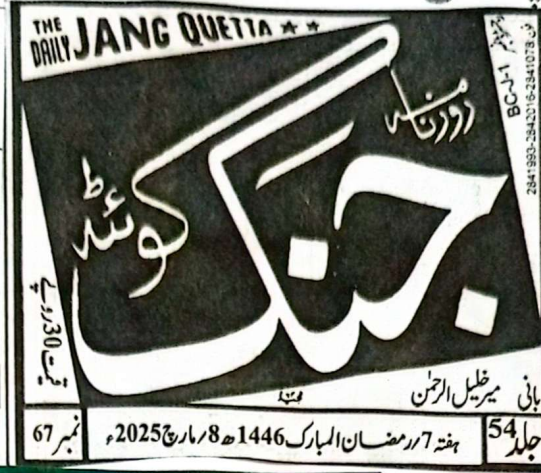 THE DAILY JANG QUETTA ★★
روزنامہ
جنگ
کوئٹہ
رجسٹرڈ نمبر BC-J-1
فون 2841993-2842016-2841078
قیمت 30 روپے
بانی میر خلیل الرحمٰن
جلد 54
ہفتہ 7/رمضان المبارک 1446ھ 8/مارچ 2025ء
نمبر 67